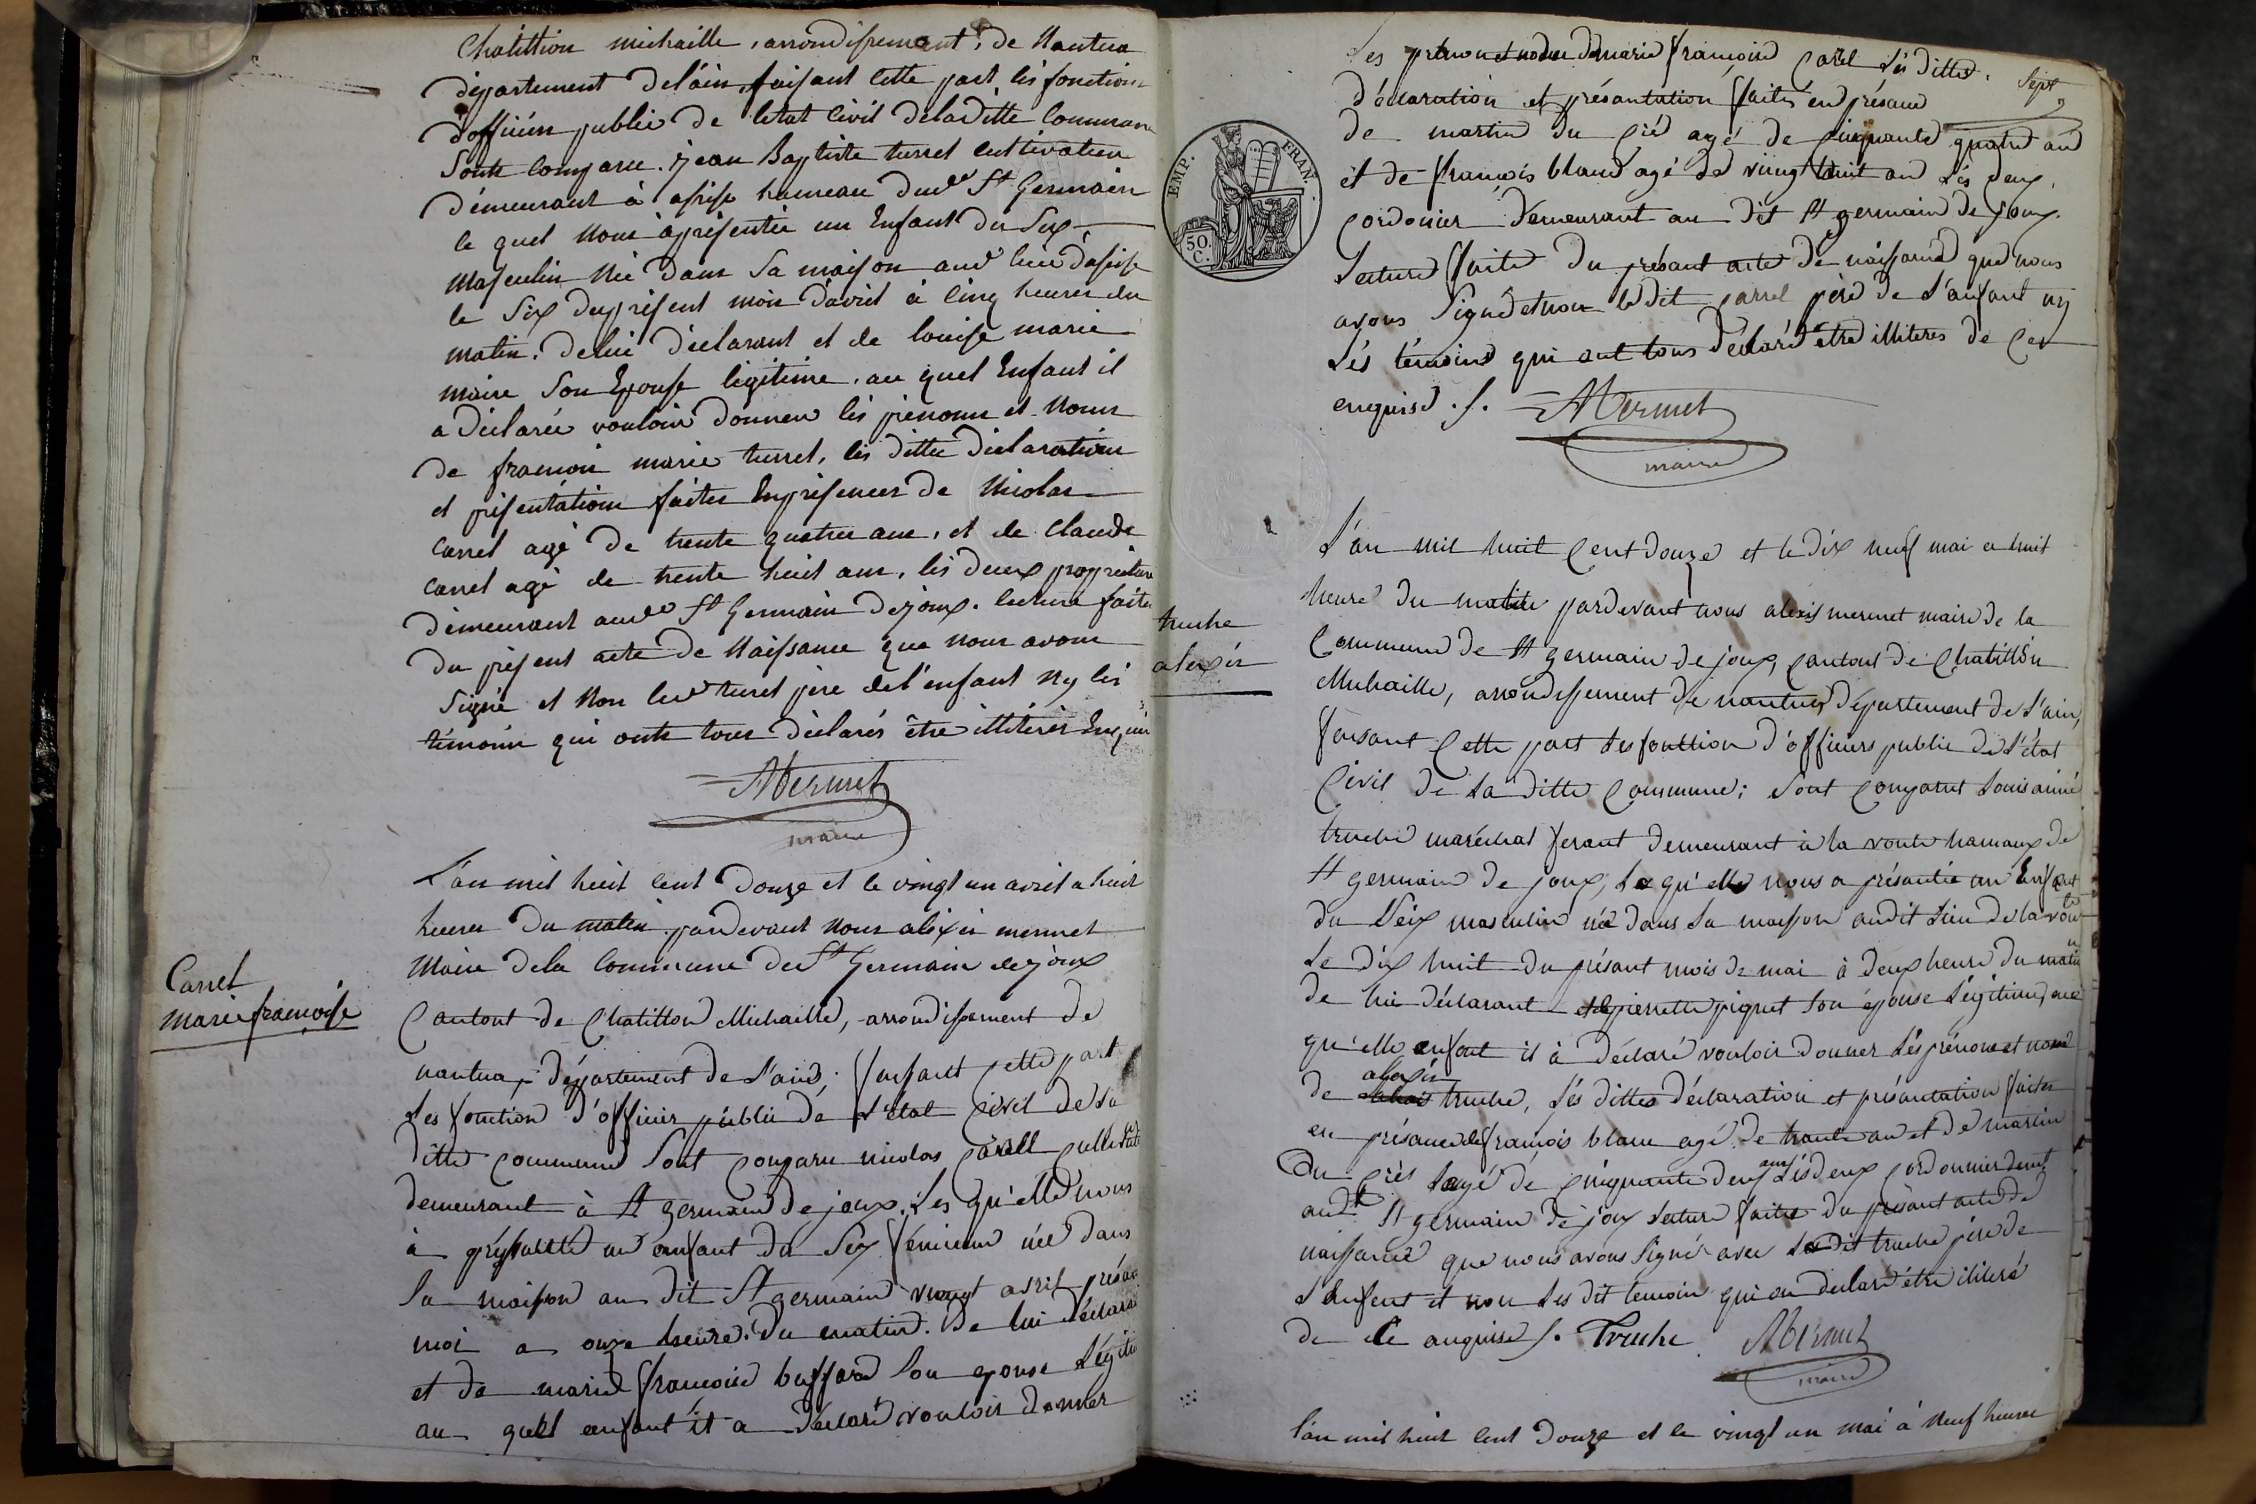 Chatillion michaille, arrondissement, de Nantua
département deláin, faisant cette part lés fonctions
d'officiér public de letat Civil deladitte Commune
Sonts Comparu. jean Baptiste turrel cultivateur
démeurant à assise hameau dud St Germain
le quel nous à présentée un Enfant du Sex
Masculin Née dans Sa maison aud lieu d'asise
le Six duprésent mois d'avril à Cinq heures du
matin. delui déclarant et de louise marie
maire Son Epouse légitime, au quel Enfant il
a déclarée vouloir donner lés prénoms et Noms
de francois marie turrel, lés dittes déclarations
et présentations faites Enprésences de Nicolas
Carrel agé de trente quatre ans, et de Claude
Carrel agé de trente huit ans, lés deux propriétaires
démeurant aud St Germain dejoux. lecture faite
du présent acte de Naissance que Nous avons
Signé et Non led turrel père del'enfant Ny lés
témoins qui onts tous déclarés être illitérés Enquis
AMermet
maire
L'án mil huit Cent douze et le vingt un avril a huit
heures du matin pardevant Nous aléxis mermet
Maire dela Commune de St Germain dejoux
Carrel
Marie francoise
Cantont de Chatillon Michaille, arrondissement de
nantua, département de l'ain, faisant Cette part
Les fonction d'officiér públic dé L'état Civil de La
ditte Commune Sont Comparu nicolas Carell Cultivate
demeurant à St germain de joux, Les qu'elle nous
à présenté un enfant du Sex féminin née dans
Sa maison au dit St germain vingt avril présant
moi a onze heure du matin. De lui déclarant
et de marie francoise buffard Son eponse Légitim
au quel enfant il a déclaré vouloir donner
Les prénon et nom de marie francoise Carel Lés dittes
Sept
déclaration et présantation faités en présance
de martin du Cré agé de Cinquante quatre ans
et de francois blanc agé de vingt huit an Lés deux
Cordonier Demeurant au dit St germain de joux.
EMP. FRAN.
50. C.
Lecture faite du présant acte de naissance que nous
avons Signé et non le dit Carrel père de L'anfant ny
Lés témoins qui ont tous déclaré être illiteres de Ce
enquise ./. AMermet
maire
L'án mil huit Cent Douze et le dix neuf mai a huit
heure du matin pardevant nous alexis mermet maire de la
truche
alexis
Commune de St germain de joux, Cantont de Chatillon
Michaille, arrondissement de nantua, Département de L'ain,
faisant Cette part Les fonction d'officiers public de L'état
Civil de La ditte Commune; Sont Comparut Louis aimé
truche maréchal ferant demeurant à la voute hamaux de
St germain de joux, Le qu'elle nous a présantée un Enfant
du Seix masculin né dans La maison au dit Lieu de la voute
Le dix huit du présant mois de mai à deux heure du matin
de lui déclarant et de pierrette piquet Son épouse Légitime, au
qu'elle enfant il à déclaré vouloir donner Lés prénom et nom
de alexis truche, Lés dittes déclaration et présantation faites
en présance de francois blanc agé de trante an et de martin
Du Crés agé de Cinquante deux ans Lés deux Cordonnier demt
audt St germain de joux Lecture faite du présant acte de
naissance que nous avons Signé avec Le dit truche père de
L'enfent et non Les dit temoin qui on declaré être ilitéré
de Ce anquise ./. Truche AMermet
maire
l'án mil huit Cent Douze et le vingt un mai à Neuf heures